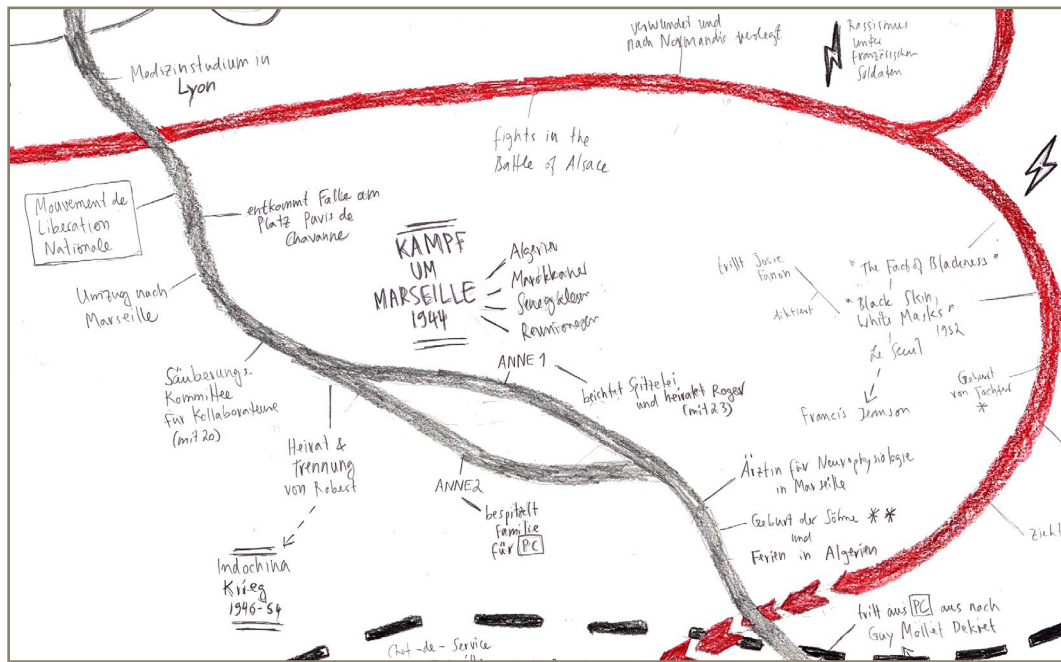 Medizinstudium in
Lyon
verwundet und
nach Normandie verlegt
Rassismus
unter
französischen
Soldaten
fights in the
Battle of Alsace
Mouvement de
Liberation
Nationale
entkommt Falle am
Platz Puvis de
Chavanne
KAMPF
UM
MARSEILLE
1944
Algerier
Marokkaner
Senegalesen
Reunionesen
Umzug nach
Marseille
trifft Josie
Fanon
diktiert
"The Fact of Blackness"
"Black Skin,
White Masks"
1952
Le Seuil
Francis Jeanson
Geburt
von Tochter
*
Säuberungs-
Kommittee
für Kollaborateure
(mit 20)
ANNE 1
beichtet Spitzelei
und heiratet Roger
(mit 23)
Heirat &
Trennung
von Robert
ANNE 2
bespitzelt
Familie
für PC
Ärztin für Neurophysiologie
in Marseille
Geburt der Söhne * *
und
Ferien in Algerien
zieht
Indochina
Krieg
1946-54
Chef-de-Service
tritt aus PC aus nach
Guy Mollet Dekret